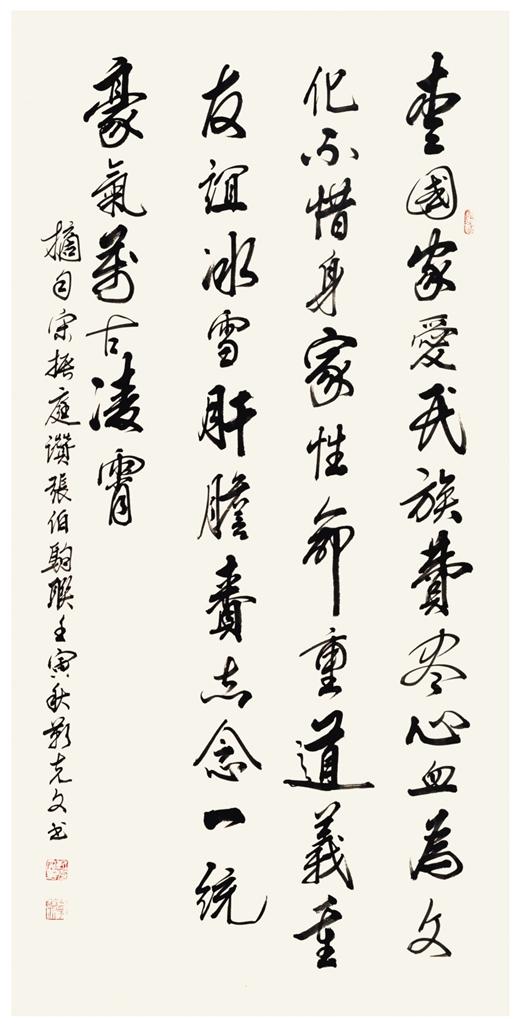 愛國家愛民族費尽心血為文
化不惜身家性命重道義重
友誼冰雪肝膽賚志念一統
豪氣萬古凌霄
摘自宋振庭讚張伯駒聯壬寅秋靳克文书